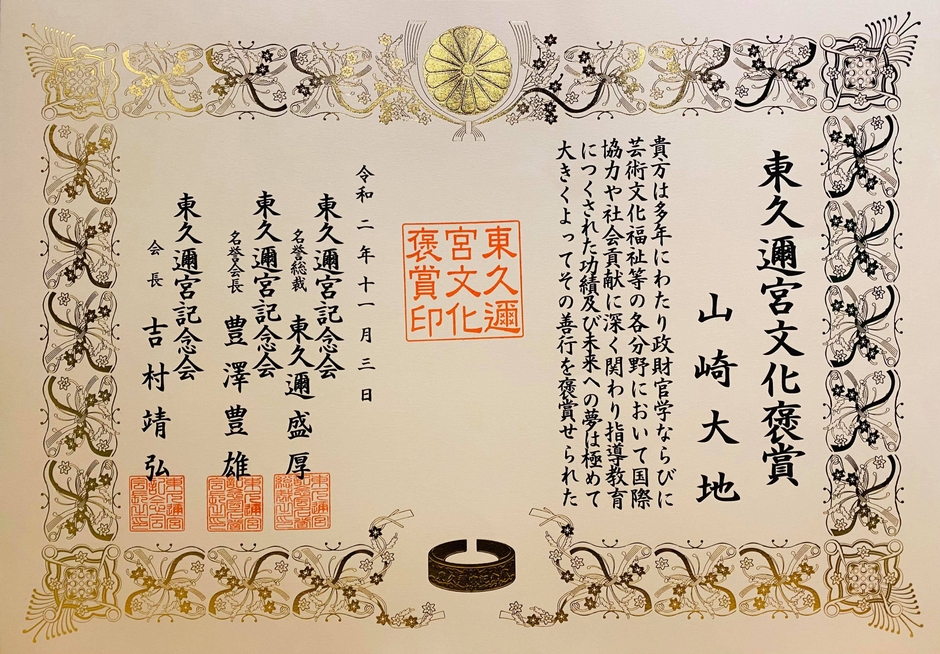 東久邇宮文化褒賞
山崎大地
貴方は多年にわたり政財官学ならびに
芸術文化福祉等の各分野において国際
協力や社会貢献に深く関わり指導教育
につくされた功績及び未来への夢は極めて
大きくよってその善行を褒賞せられた
東久邇
宮文化
褒賞印
令和二年十一月三日
東久邇宮記念会
名誉総裁 東久邇盛厚
東久邇宮記念会
名誉会長 豊澤豊雄
東久邇宮記念会
会長 吉村靖弘